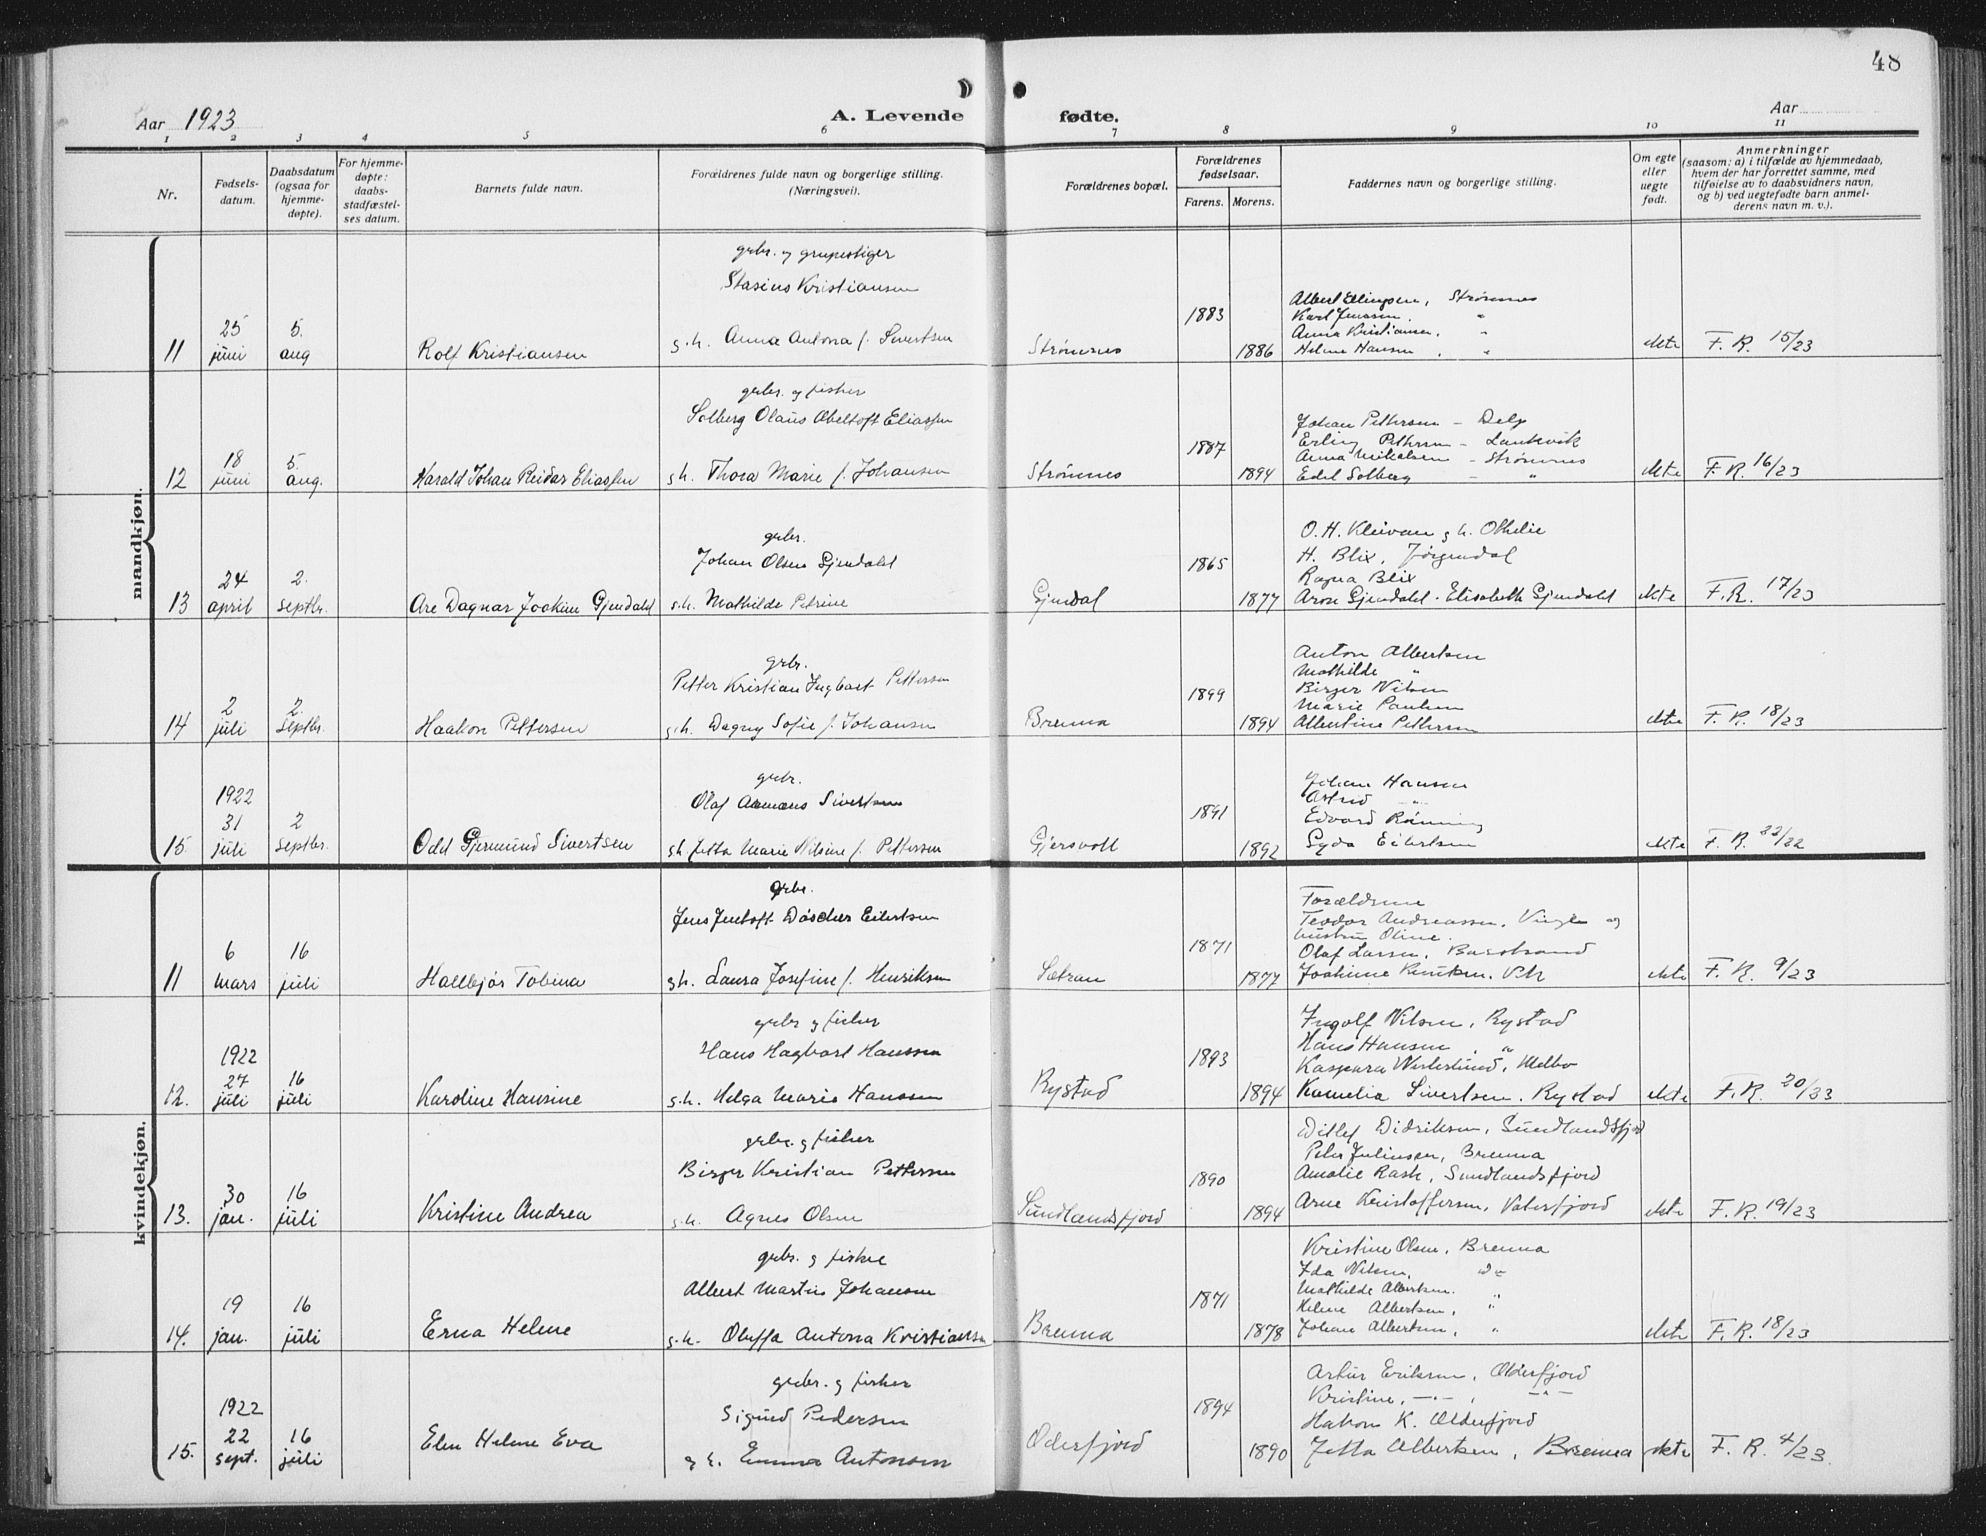 48
Aar 1923
A. Levende fødte.
Aar
1 2 3 4 5 6 7 8 9 10 11
Nr.
Fødsels-
datum.
Daabsdatum
(ogsaa for
hjemme-
døpte).
For hjemme-
døpte:
daabs-
stadfæstel-
ses datum.
Barnets fulde navn.
Forældrenes fulde navn og borgerlige stilling.
(Næringsvei).
Forældrenes bopæl.
Forældrenes
fødselsaar.
Farens. Morens.
Faddernes navn og borgerlige stilling.
Om egte
eller
uegte
født.
Anmerkninger
(saasom: a) i tilfælde av hjemmedaab,
hvem der har forrettet samme, med
tilføielse av to daabsvidners navn,
og b) ved uegtefødte barn anmel-
derens navn m. v.).
mandkjøn.
11
25
juni
5.
aug
Rolf Kristiansen
grbr. og grupestiger
Stasius Kristiansen
g.h. Anna Antona f. Sivertsen
Strømnes
1883
1886
Albert Ellingsen, Strømnes
Karl Jenssen, "
Anna Kristiansen, "
Helene Hansen, "
ekte
F. R. 15/23
12
18
juni
5.
aug.
Harald Johan Reidar Eliassen
grbr. og fisker
Solberg Olaus Abeltoft Eliassen
g.h. Thora Marie f. Johansen
Strømnes
1887
1894
Johan Pettersen - Delp
Erling Pettersen - Lankvik
Anna Mikalsen - Strømnes
Edel Solberg - "
ekte
F. R. 16/23
13
24
april
2.
septbr.
Are Dagnar Joakim Gjendald
grbr.
Johan Olsen Gjendald
g.h. Mathilde Petrine
Gjendal
1865
1877
O. H. Kleivan g.h. Othelie
H. Blix, Jørgendal
Ragna Blix
Aron Gjendald. Elisabeth Gjendald
ekte
F. R. 17/23
14
2
juli
2.
septbr.
Haakon Pettersen
grbr.
Petter Kristian Ingbart Pettersen
g.h. Dagny Sofie f. Johansen
Brenna
1899
1894
Anton Albertsen
Mathilde "
Birger Nilsen
Marie Paulsen
Albertine Pettersen
ekte
F. R. 18/23
15.
1922
31
juli
2
septbr.
Odd Gjermund Sivertsen
grbr.
Olaf Sivertsen
g.h. Jetta Marie Nilsine f. Pettersen
Gjersvoll
1891
1892
Johan Hansen
Astrid "
Edvard Rønning
Syda Eilertsen
ekte
F. R. 22/22
kvindekjøn.
11
6
mars
16
juli
Hallbjør Tobina
grbr.
Jens Jentoft Døscher Eilertsen
g.h. Laura Josefine f. Henriksen
Sætran
1871
1877
Forældrene
Teodor Andreassen, og
hustru Oline.
Olaf Larsen, Barstrand
Joakime Knutsen, Vik
ekte
F. R. 9/23
12.
1922
27
juli
16
juli
Karoline Hansine
grbr og fisker
Hans Hagbart Hanssen
g.h. Helga Marie Hanssen
Rystad
1893
1894
Ingolf Nilsen, Rystad
Hans Hansen, "
Kaspara Westerlund, Melbo
Kamelia Sivertsen. Rystad
ekte
F. R. 20/23
13.
30
jan.
16
juli
Kristine Andrea
grbr. og fisker
Birger Kristian Pettersen
g.h. Agnes Olsen
Sundlandsfjord
1890
1894
Ditlef Didriksen, Sundlandsfjord
Peter Juliussen, Brenna
Amalie Rask, Sundlandsfjord
Arne Kristoffersen, Vatersfjord
ekte
F. R. 19/23
14.
19
jan.
16
juli
Erna Helene
grbr. og fisker
Albert Martin Johansen
g.h. Oluffa Antona Kristiansen
Brenna
1871
1878
Kristine Olsen, Brenna
Ida Nilsen, "
Mathilde Albertsen. "
Helene Albertsen, "
Johan Albertsen, "
ekte
F. R. 18/23
15.
1922
22
sept.
16
juli
Elen Helene Eva
grbr. og fisker
Sigurd Pedersen
g h. Emma Antonsen
Oderfjord
1894
1890
Artur Eriksen, Olderfjord
Kristine, -"- , -"-
Hakon K. Olderfjord
Jetta Albertsen, Brenna
ekte
F. R. 4/23.